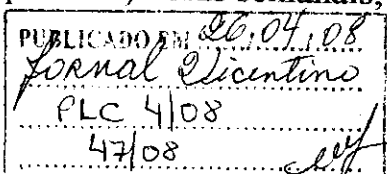 PUBLICADO EM 26.04.08
Jornal Vicentino
PLC 4/08
47/08